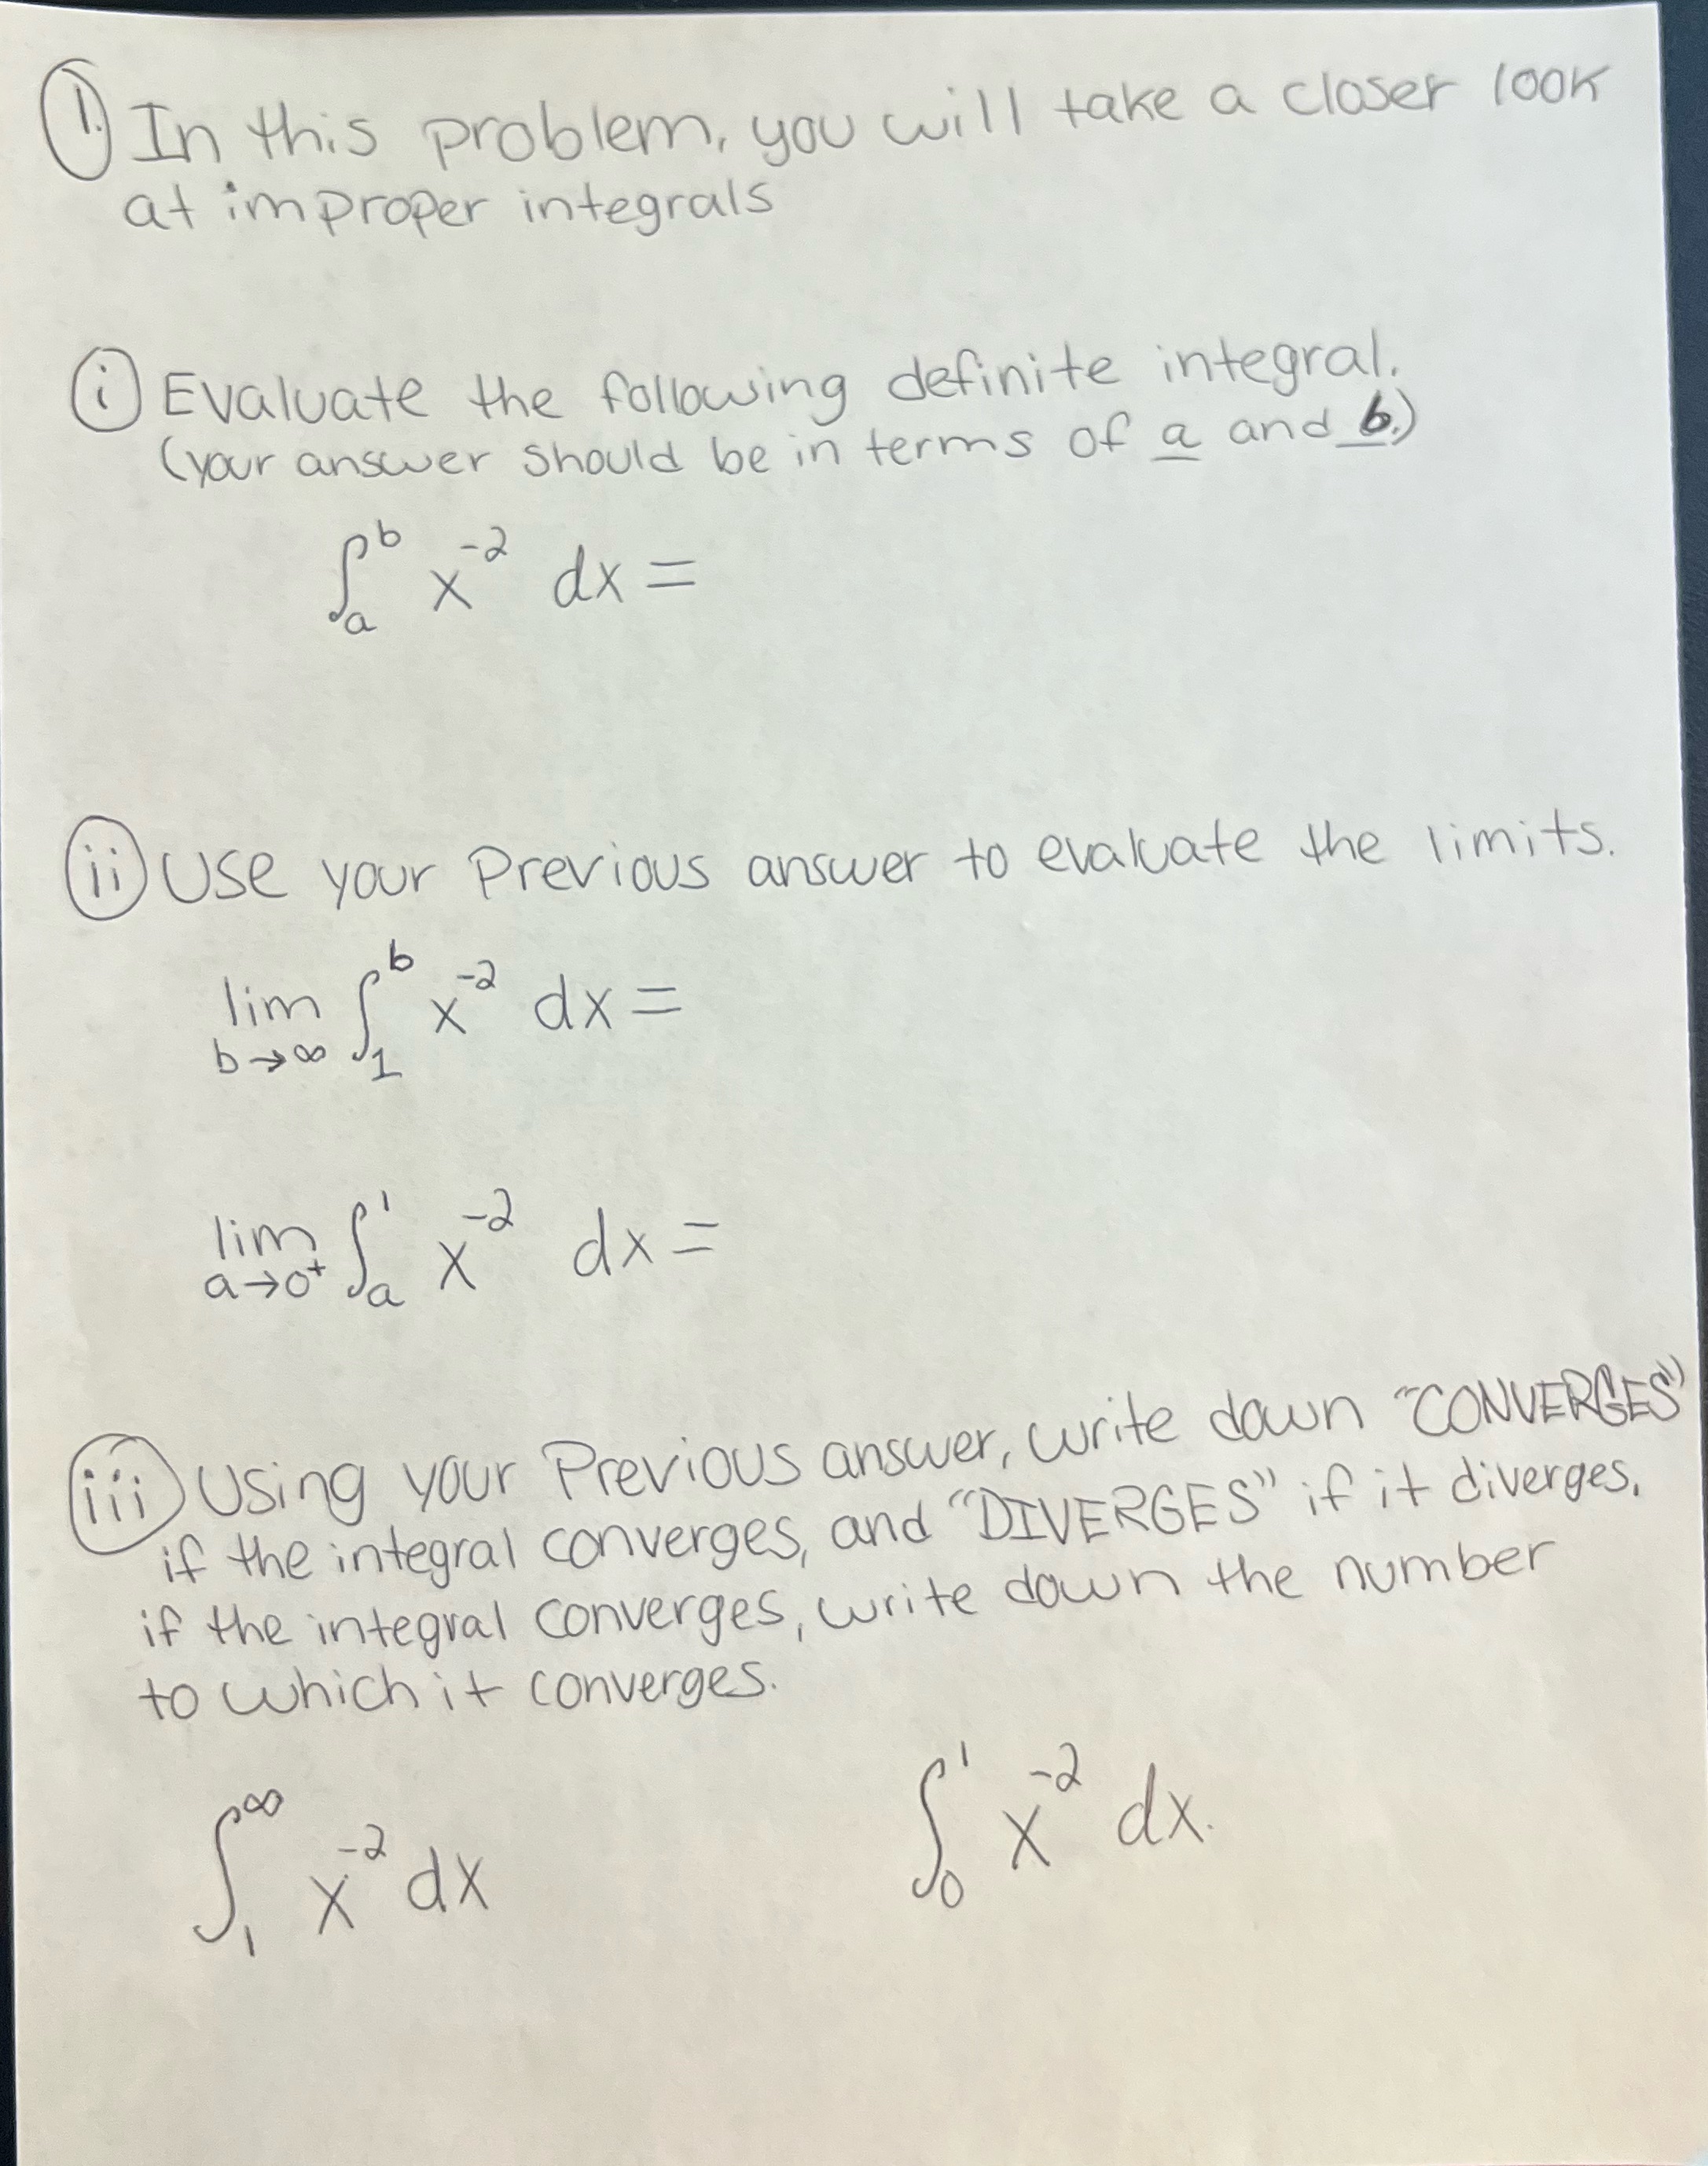 1. In this problem, you will take a closer look
at improper integrals
i Evaluate the following definite integral.
(your answer should be in terms of a and b.)
∫_a^b x^-2 dx =
ii Use your Previous answer to evaluate the limits.
lim_{b→∞} ∫_1^b x^-2 dx =
lim_{a→0+} ∫_a^1 x^-2 dx =
iii Using your Previous answer, write down "CONVERGES"
if the integral converges, and "DIVERGES" if it diverges.
if the integral converges, write down the number
to which it converges.
∫_1^∞ x^-2 dx ∫_0^1 x^-2 dx.